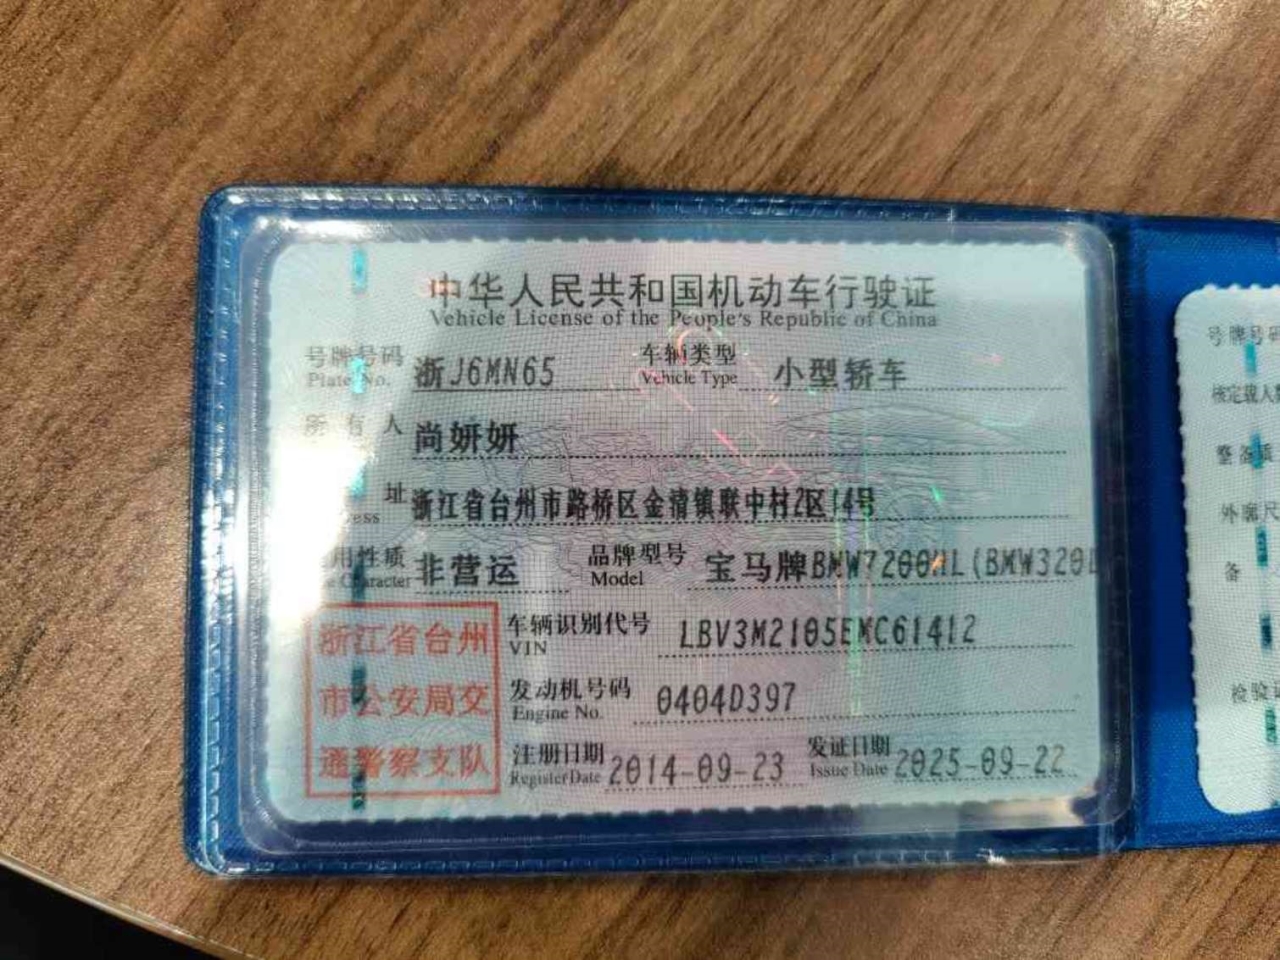 中华人民共和国机动车行驶证
Vehicle License of the People's Republic of China
号牌号码 浙J6MN65 车辆类型 小型轿车
Plate No. Vehicle Type
所有人 尚妍妍
址 浙江省台州市路桥区金清镇联中村2区14号
ess
用性质 非营运 品牌型号 宝马牌BMW7200ML(BMW320L
Character Model
车辆识别代号 LBV3M2105EMC61412
VIN
发动机号码 0404D397
Engine No.
注册日期 2014-09-23 发证日期 2025-09-22
Register Date Issue Date
浙江省台州
市公安局交
通警察支队
号牌号码
核定载人
整备质
外廓尺
备
检验